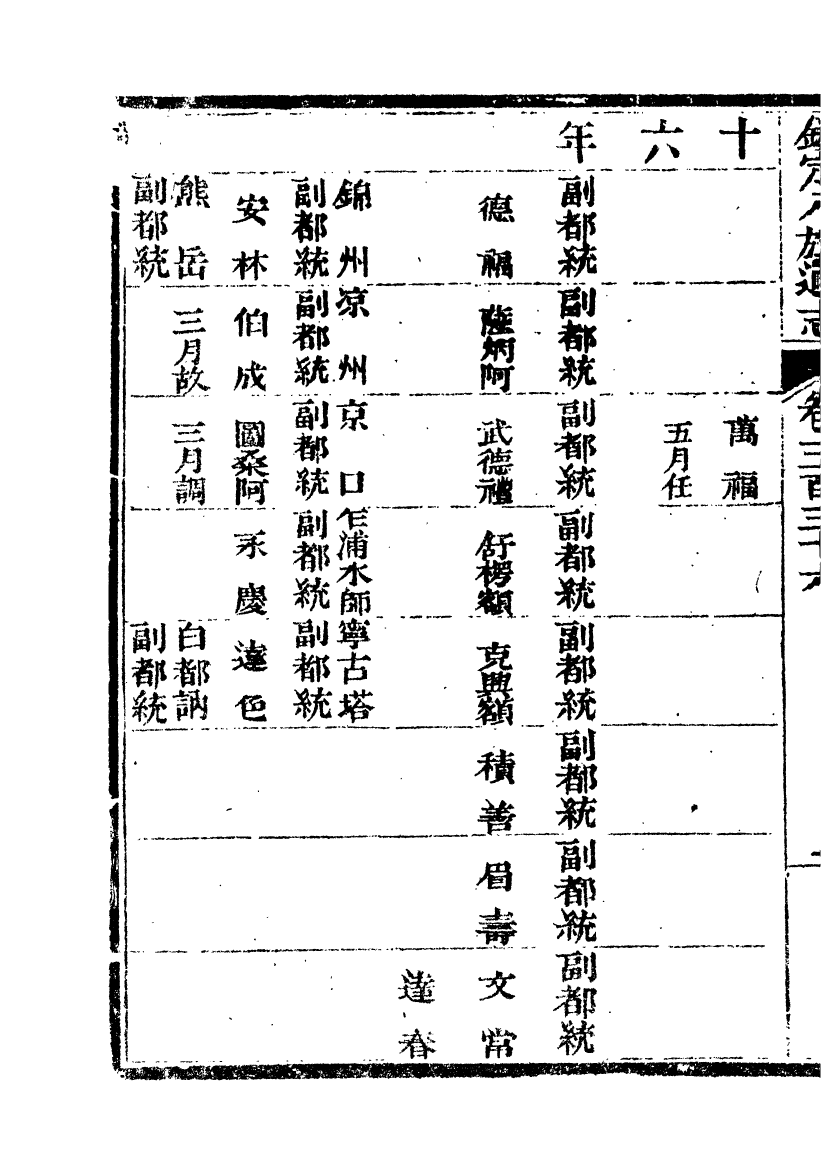 欽定八旗通志 卷三百三十六
十 萬福
六 五月任
年 副都統 副都統 副都統 副都統 副都統 副都統 副都統 副都統
德福 薩炳阿 武德禮 舒楞額 克興額 積善 眉壽 文常
達春
錦州 凉州 京口 乍浦水師 寧古塔
副都統 副都統 副都統 副都統 副都統
安林 伯成 圖桑阿 禾慶 達色
熊岳 三月故 三月調 白都訥
副都統 副都統